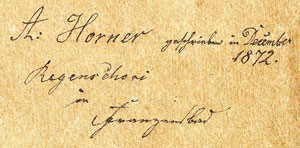 A: Horner geschrieben in December
1872.
Regenschori
in
Franzensbad